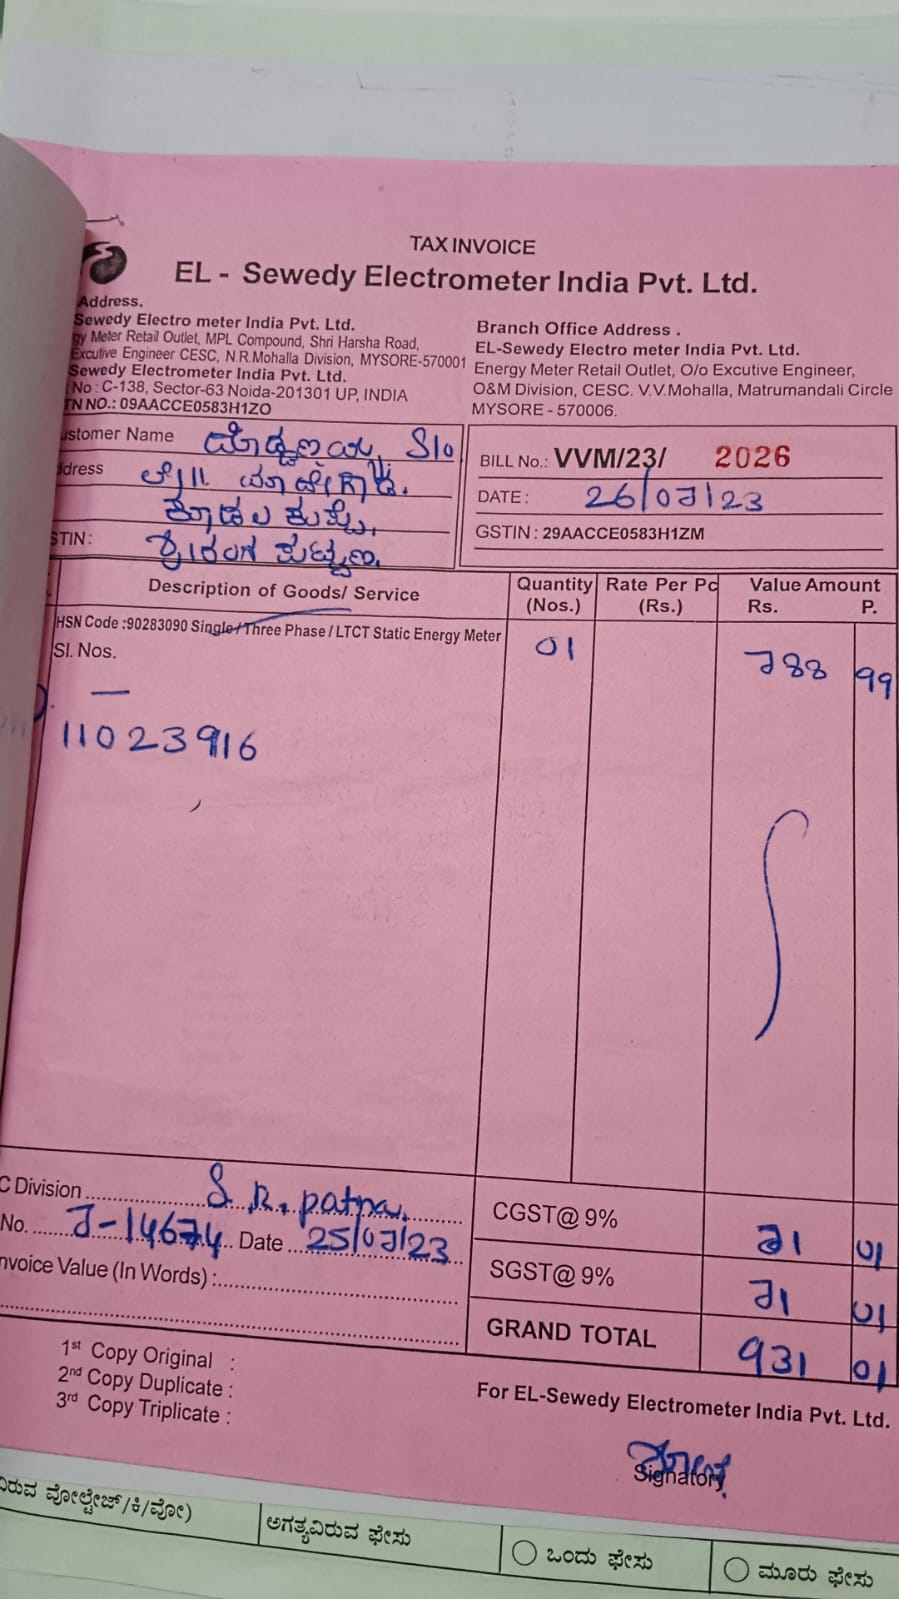 TAX INVOICE
EL - Sewedy Electrometer India Pvt. Ltd.
Address.
Sewedy Electro meter India Pvt. Ltd.
gy Meter Retail Outlet, MPL Compound, Shri Harsha Road,
Excutive Engineer CESC, N.R.Mohalla Division, MYSORE-570001
Sewedy Electrometer India Pvt. Ltd.
No : C-138, Sector-63 Noida-201301 UP, INDIA
TN NO.: 09AACCE0583H1ZO
Branch Office Address .
EL-Sewedy Electro meter India Pvt. Ltd.
Energy Meter Retail Outlet, O/o Excutive Engineer,
O&M Division, CESC. V.V.Mohalla, Matrumandali Circle
MYSORE - 570006.
ustomer Name S/o
dress
STIN :
BILL No.: VVM/23/ 2026
DATE : 26/07/23
GSTIN : 29AACCE0583H1ZM
Description of Goods/ Service
Quantity (Nos.)
Rate Per Pc (Rs.)
Value Amount
Rs. P.
HSN Code :90283090 Single / Three Phase / LTCT Static Energy Meter
01
788 99
Sl. Nos.
11023916
C Division S. R. patna.
No. J-14674 Date 25/07/23
nvoice Value (In Words) :
CGST@ 9% 71 01
SGST@ 9% 71 01
GRAND TOTAL 931 01
1st Copy Original :
2nd Copy Duplicate :
3rd Copy Triplicate :
For EL-Sewedy Electrometer India Pvt. Ltd.
Signatory
ವಿರುವ ವೋಲ್ಟೇಜ್/ಕಿ/ವೋ)
ಅಗತ್ಯವಿರುವ ಫೇಸು
ಒಂದು ಫೇಸು
ಮೂರು ಫೇಸು